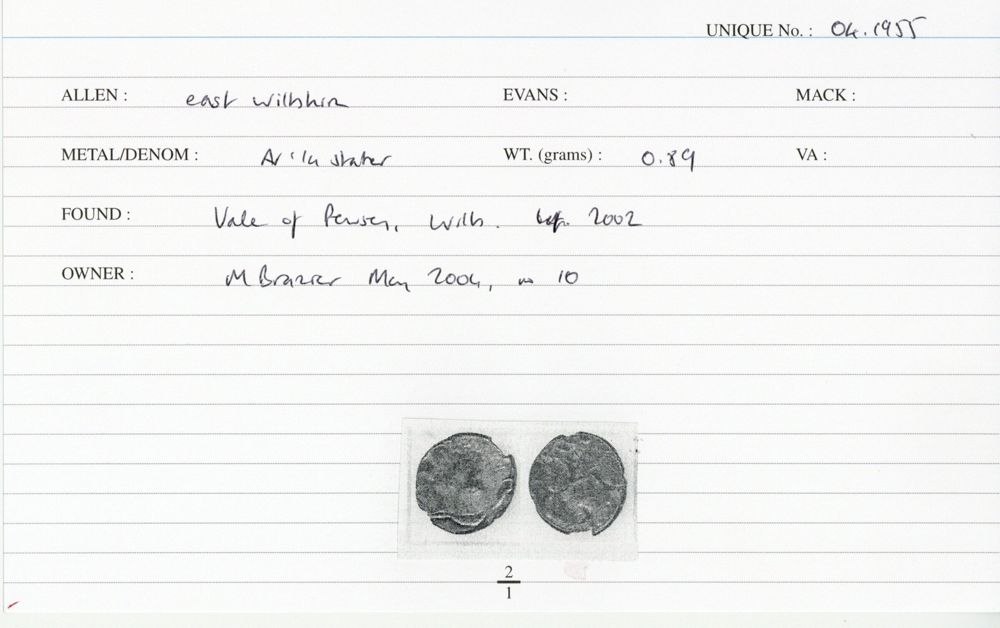 UNIQUE No. : 04.1955
ALLEN : east wiltshire EVANS : MACK :
METAL/DENOM : Ar 1/4 stater WT. (grams) : 0.89 VA :
FOUND : Vale of Pewsey, Wilts. 2002
OWNER : M Brazier May 2004, no 10
2
1